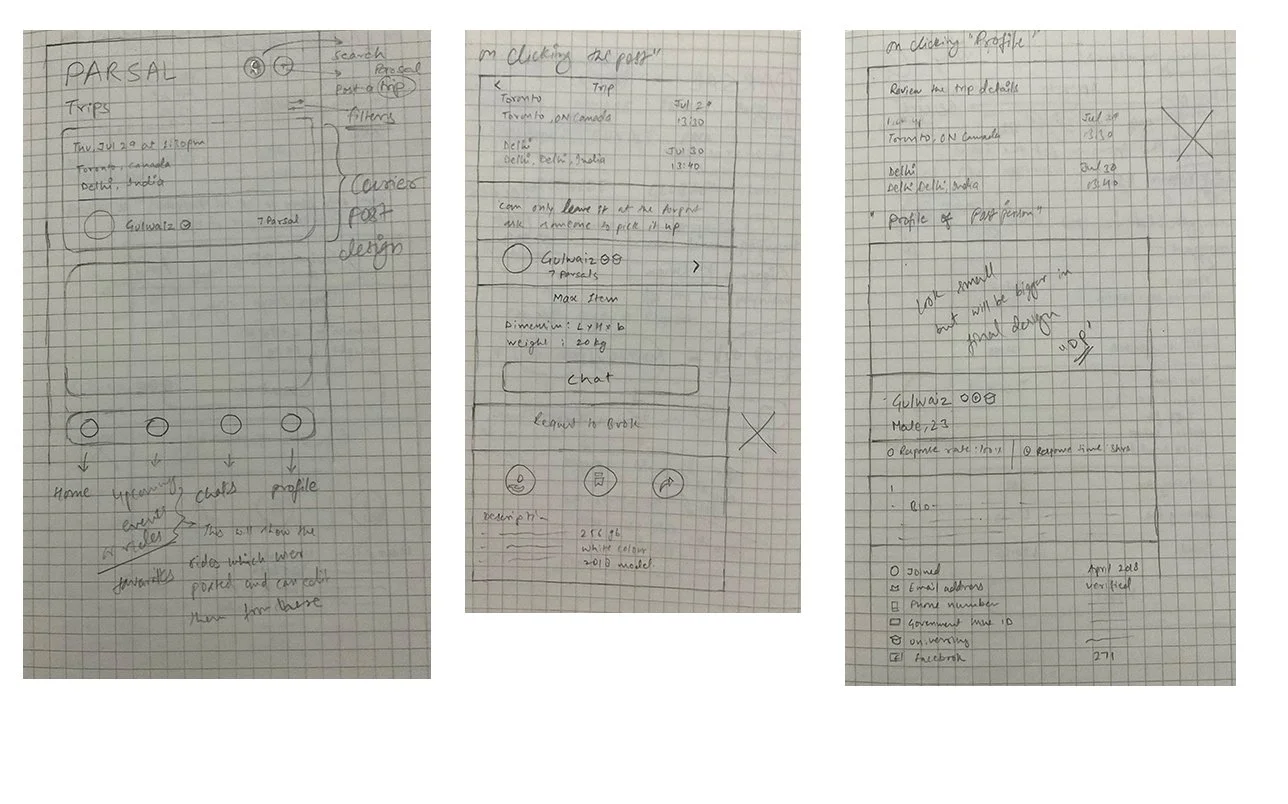 PARSAL
search
Parsal
Post a Trip
Trips
filters
Thu, Jul 29 at 1:30pm
Toronto, Canada
Delhi, India
Gulwaiz
7 Parsal
Carrier
Post
design
Home
upcoming
events
or rides
favourites
chats
profile
This will show the
rides which were
posted and can edit
them from these
on clicking the post"
< Trip
Toronto Jul 29
Toronto, ON Canada 13:30
Delhi Jul 30
Delhi, Delhi, India 13:40
can only leave it at the Airport
ask someone to pick it up
Gulwaiz >
7 Parsals
Max Item
Dimension: L x H x b
weight : 20 kg
Chat
Request to Book
Description
256 gb
white colour
2018 model
on clicking "Profile"
Review the trip details
Jul 29
Toronto, ON Canada 13:30
Delhi Jul 30
Delhi Delhi, India 03:40
"Profile of Post person"
Look small
but will be bigger in
final design
Gulwaiz
Male, 23
Response rate: 100% Response time 3hrs
Bio
Joined April 2018
Email address verified
Phone number
Government ID
University
Facebook 271